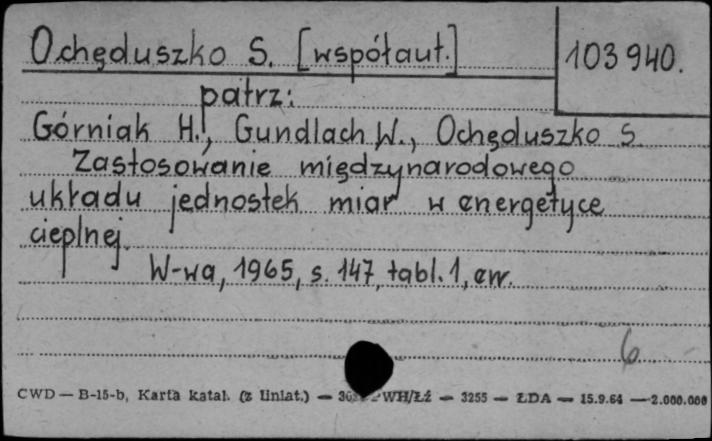 Ochęduszko S. [współaut.]
103 940.
patrz:
Górniak H., Gundlach W., Ochęduszko S.
Zastosowanie międzynarodowego
układu jednostek miar w energetyce
cieplnej.
W-wa, 1965, s. 147, tabl. 1, err.
6
CWD — B-15-b, Karta katal. (z liniat.) — WH/Łź — 3255 — ŁDA — 15.9.64 — 2.000.000